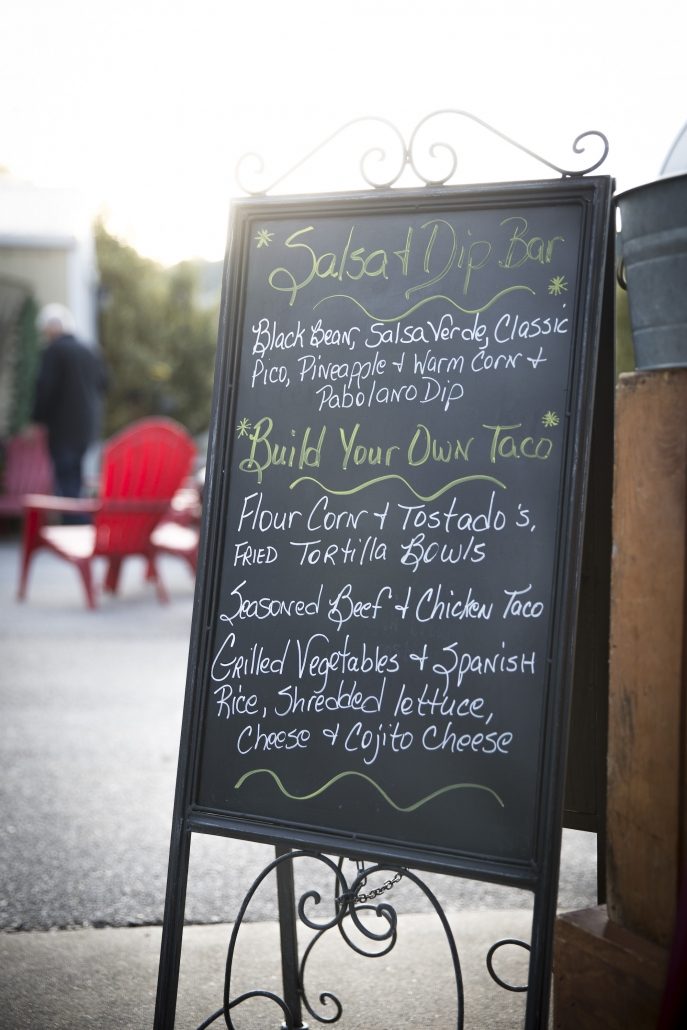 Salsa & Dip Bar
Black Bean, Salsa Verde, Classic
Pico, Pineapple & Warm Corn &
Pabolano Dip
Build Your Own Taco
Flour Corn & Tostado's,
FRIED Tortilla Bowls
Seasoned Beef & Chicken Taco
Grilled Vegetables & Spanish
Rice, Shredded lettuce,
Cheese & Cojito Cheese